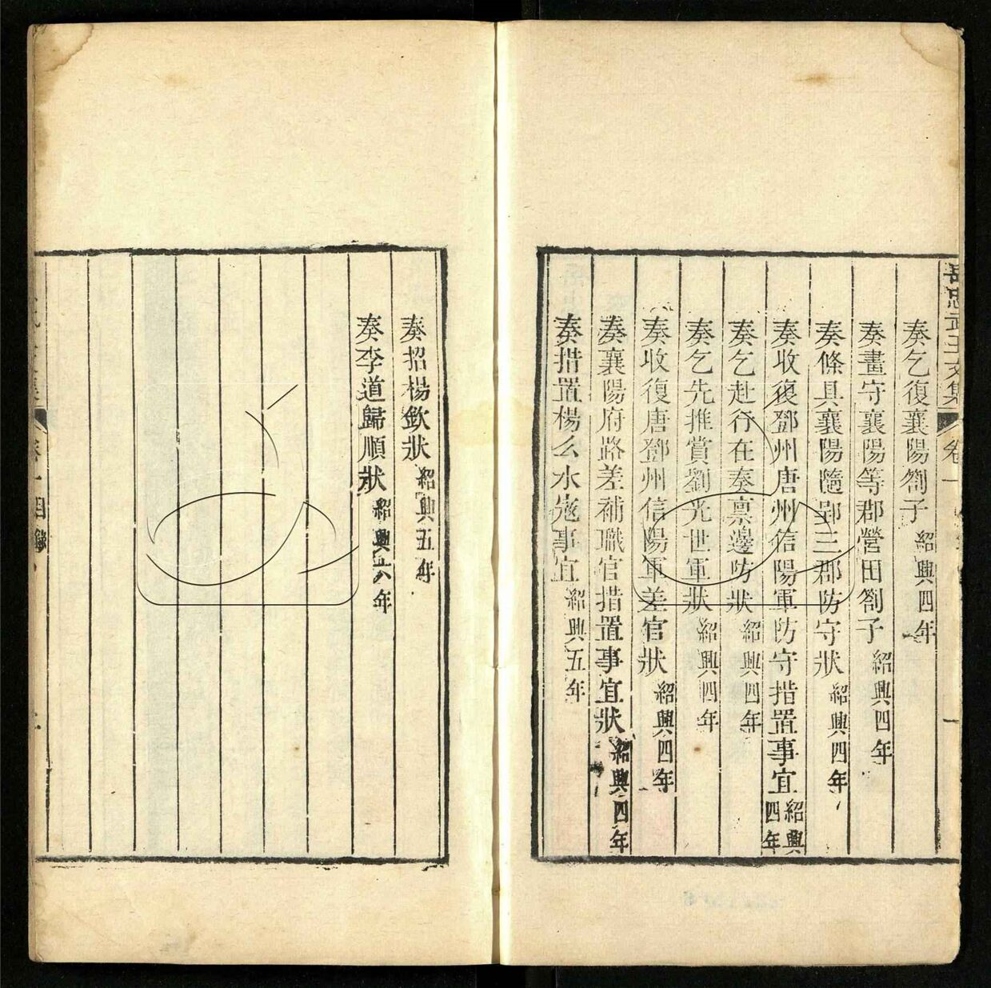 岳忠武王文集 卷一
奏乞復襄陽劄子 紹興四年
奏畫守襄陽等郡營田劄子 紹興四年
奏條具襄陽隨郢三郡防守狀 紹興四年
奏收復鄧州唐州信陽軍防守措置事宜 紹興四年
奏乞赴行在奏禀邊防狀 紹興四年
奏乞先推賞劉光世軍狀 紹興四年
奏收復唐鄧州信陽軍差官狀 紹興四年
奏襄陽府路差補職官措置事宜狀 紹興四年
奏措置楊么水寇事宜 紹興五年
奏招楊欽狀 紹興五年
奏李道歸順狀 紹興六年